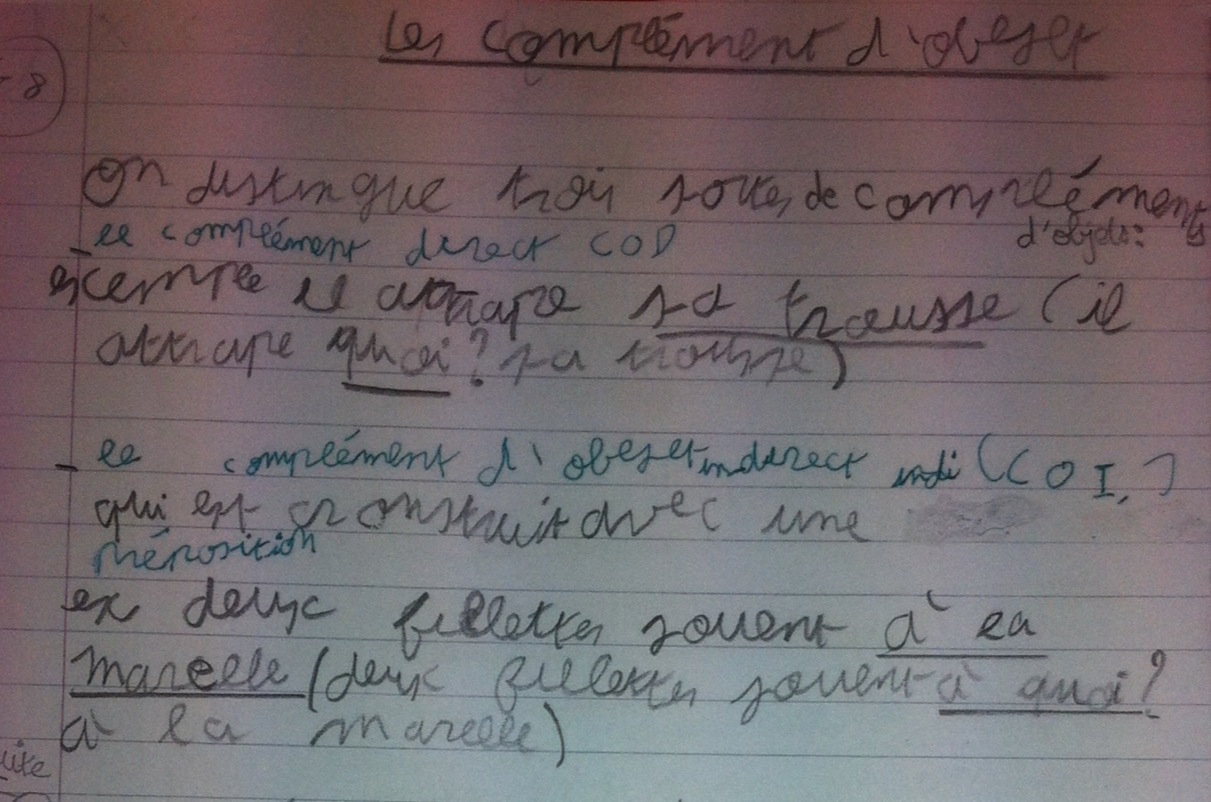 - 8
Les complément d'obejet
On distingue trois sortes de compléments
d'objets:
- le complément direct COD
excemple il attrape sa trousse (il
attrape quoi? sa trousse)
- le complément d'obejet indirect indi (COI,)
qui est construit avec une
préposition
ex deux fillettes jouent à la
marelle (deux fillettes jouent à quoi?
à la marelle)